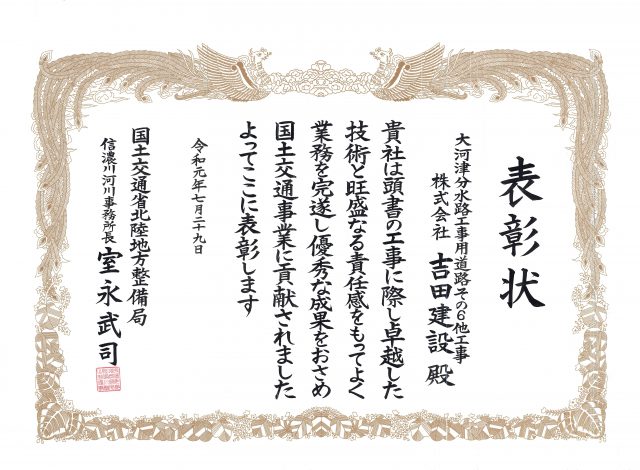 表彰状
大河津分水路工事用道路その6他工事
株式会社 吉田建設 殿
貴社は頭書の工事に際し卓越した
技術と旺盛なる責任感をもってよく
業務を完遂し優秀な成果をおさめ
国土交通事業に貢献されました
よってここに表彰します
令和元年七月二十九日
国土交通省北陸地方整備局
信濃川河川事務所長 室永武司